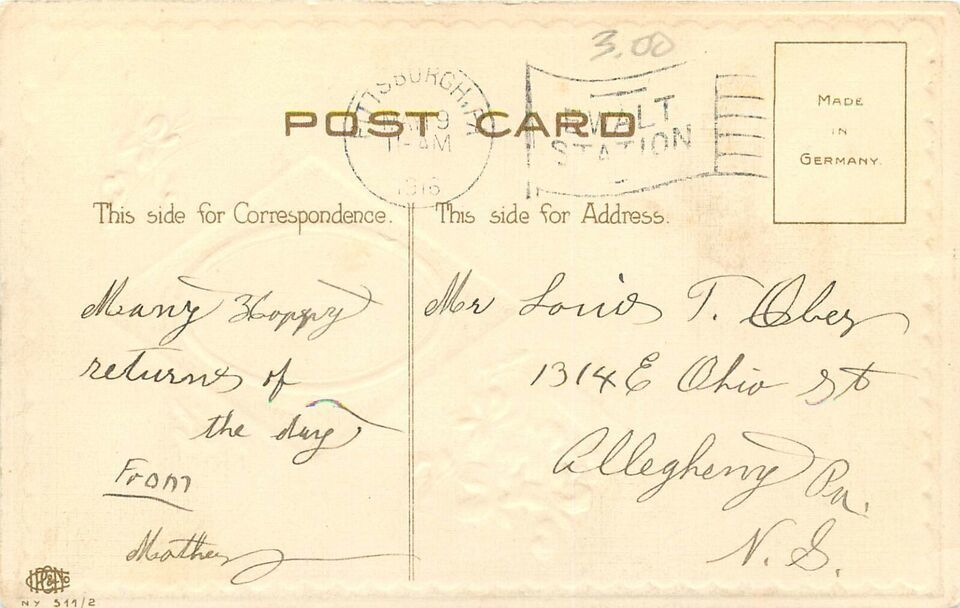 3.00
PITTSBURGH, PA
9
11-AM
1916
STATION
POST CARD
MADE
IN
GERMANY.
This side for Correspondence.
This side for Address.
Many Happy
returns of
the day
From
Mother
Mr Louis T. Ober
1314 E Ohio St
Allegheny Pa.
N. S.
NY 511/2